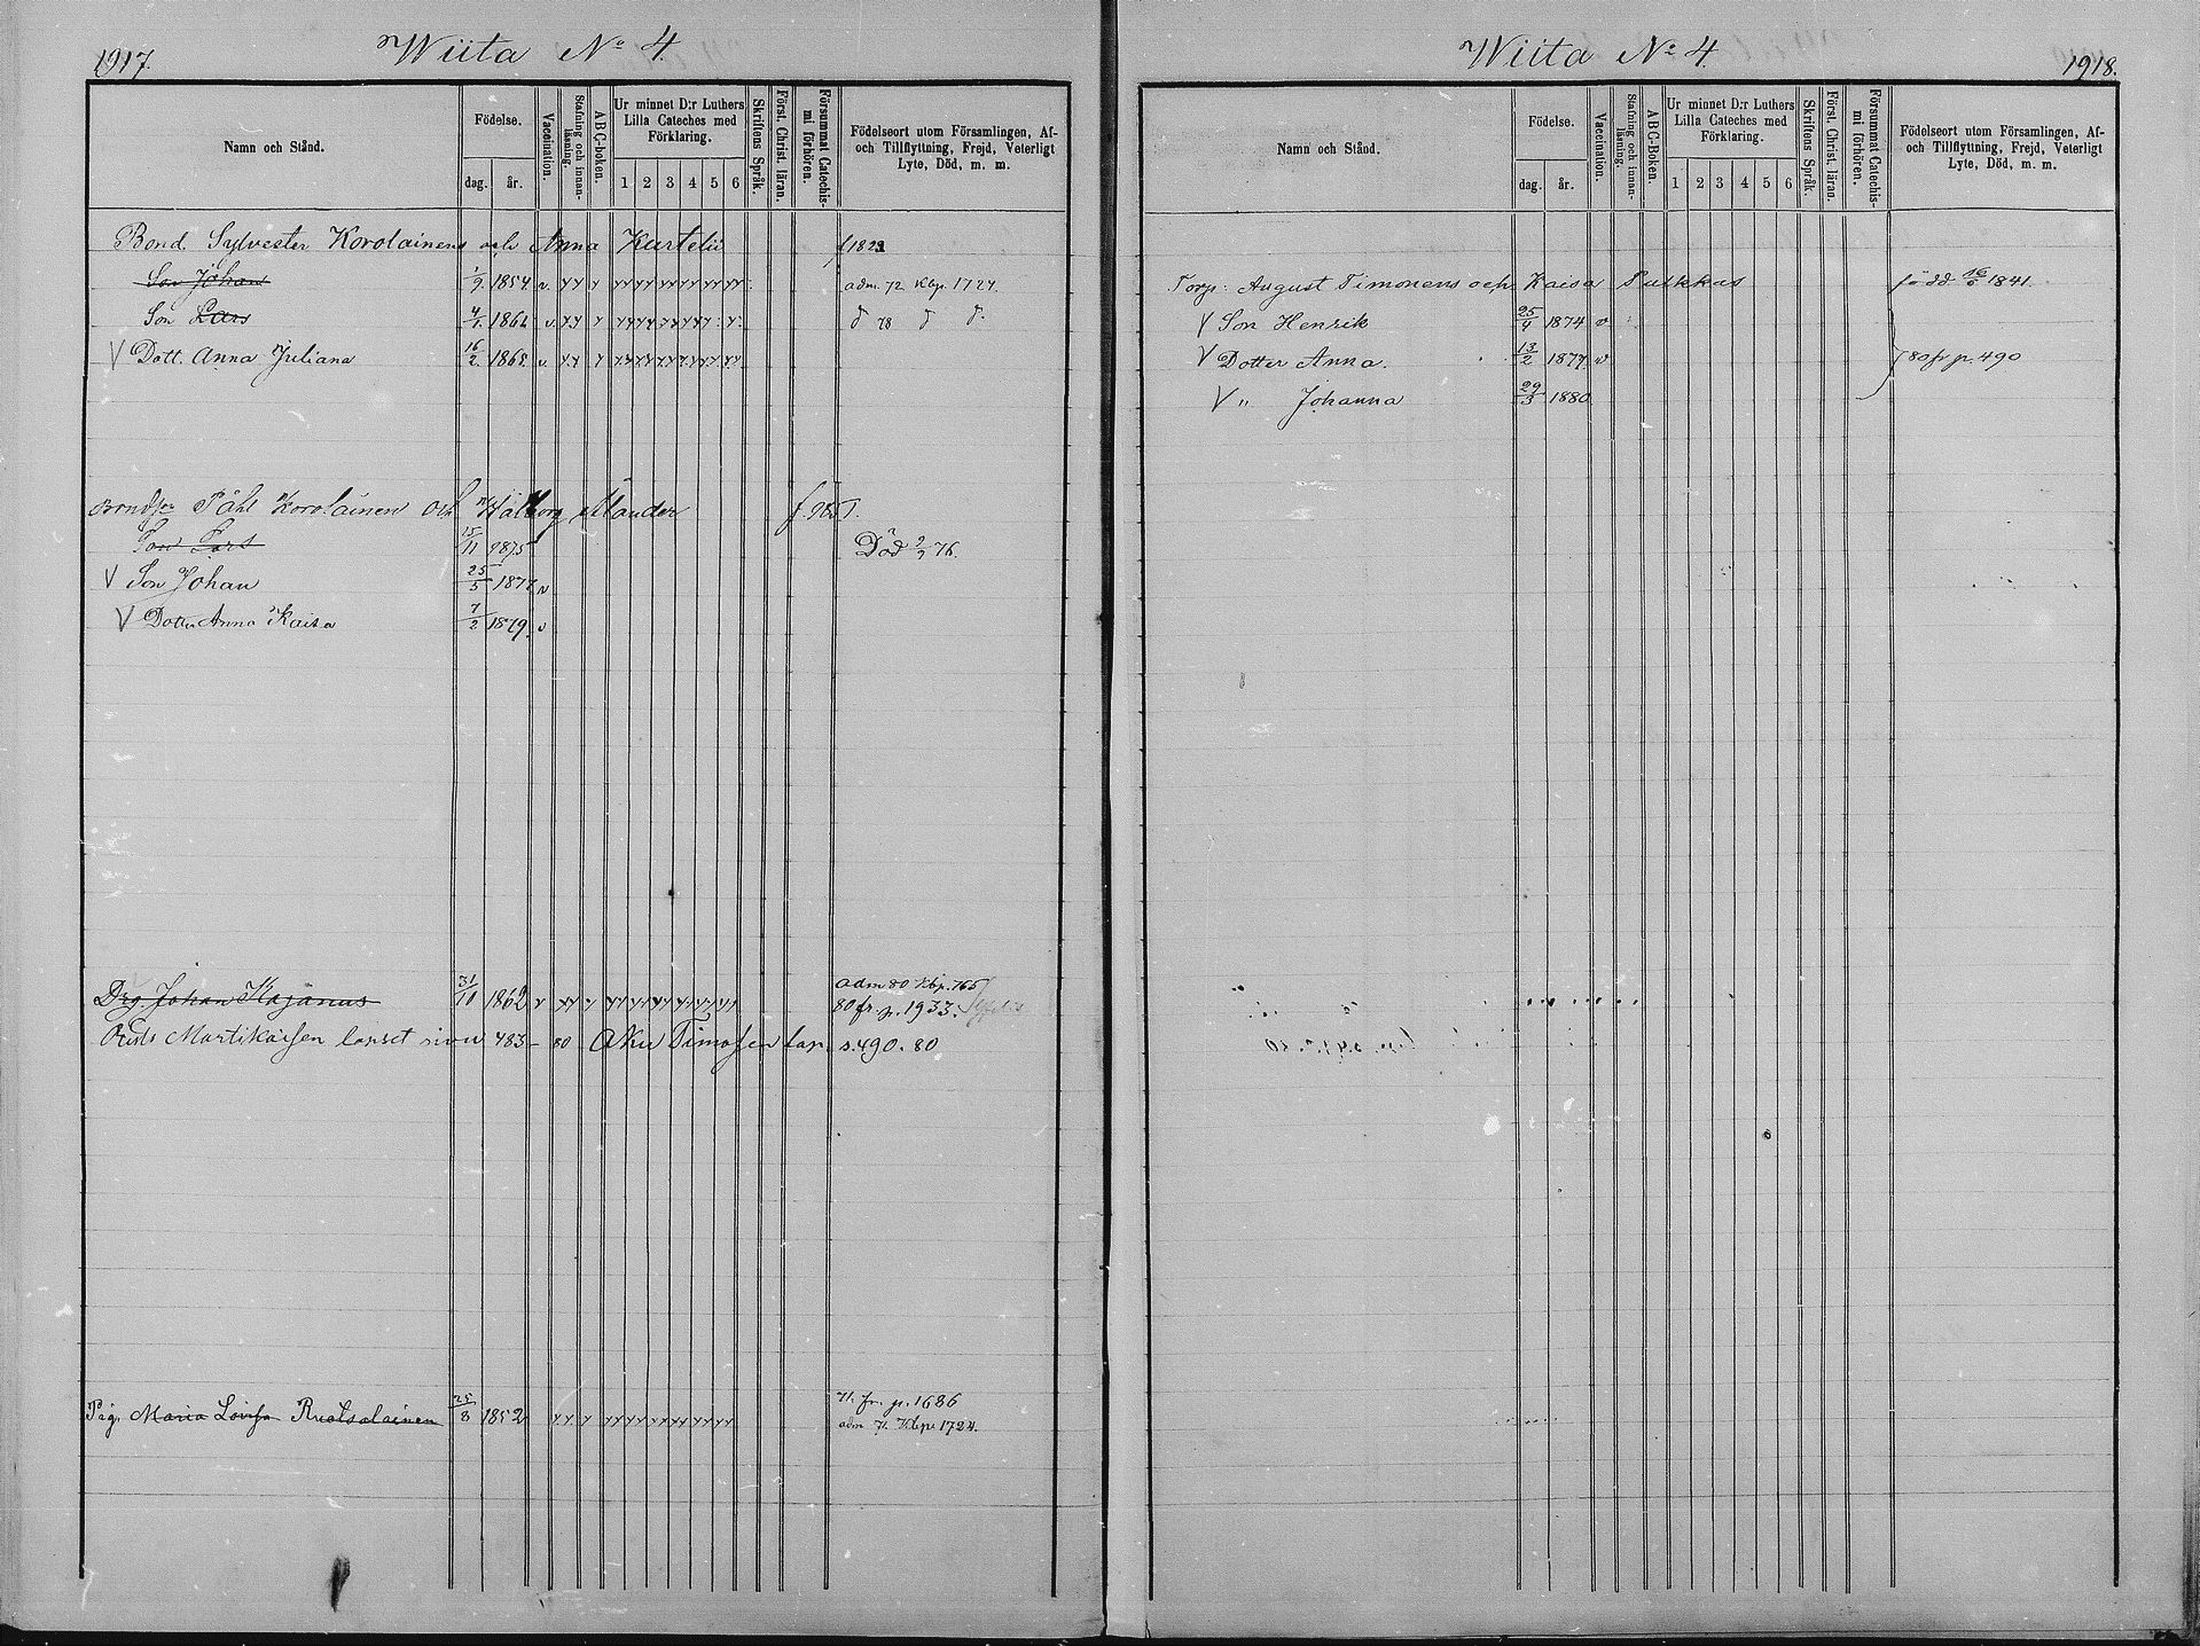 1917.
Wiita No 4.
Namn och Stånd.
Födelse.
dag. år.
Vaccination.
Stafning och innan-läsning.
ABC-boken.
Ur minnet D:r Luthers Lilla Cateches med Förklaring.
1 2 3 4 5 6
Skriftens Språk.
Först. Christ. läran.
Försummat Catechis-mi förhören.
Födelseort utom Församlingen, Af- och Tillflyttning, Frejd, Veterligt Lyte, Död, m. m.
Bond. Sylvester Korolainens och Anna Kurtelii
Son Johan 1/9 1854 v adm. 72 Kbp. 1724.
Son Lars 4/1 v 78
V Dott. Anna Juliana 16/2 1865 v
Bondson Påhl Korolainen och Walborg Mander
Son Lars 15/11 1875 Död 2/2 76.
V Son Johan 25/5 1877 v
V Dotter Anna Kaisa 7/2 1879 v
Drg. Johan Kajanus 31/10 1862 adm 80 Kbp. 765
80 fr. p. 1933.
Martikaisen lapset sivu 483 - 80 Aku Timosen lap. s. 490. 80
Pig. Maria Lovisa Ruotsalainen 25/8 1852 71. fr. p. 1686
adm 71. Kbp. 1724.
Wiita No 4.
1918.
Namn och Stånd.
Födelse.
dag. år.
Vaccination.
Stafning och innan-läsning.
ABC-Boken.
Ur minnet D:r Luthers Lilla Cateches med Förklaring.
1 2 3 4 5 6
Skriftens Språk.
Först. Christ. läran.
Försummat Catechis-mi förhören.
Födelseort utom Församlingen, Af- och Tillflyttning, Frejd, Veterligt Lyte, Död, m. m.
Torp: August Timonens och Kaisa Pulkkas född 1841.
V Son Henrik 25/4 1874 v
V Dotter Anna. 13/2 1877 v 80 fr p. 490
V " Johanna 29/3 1880